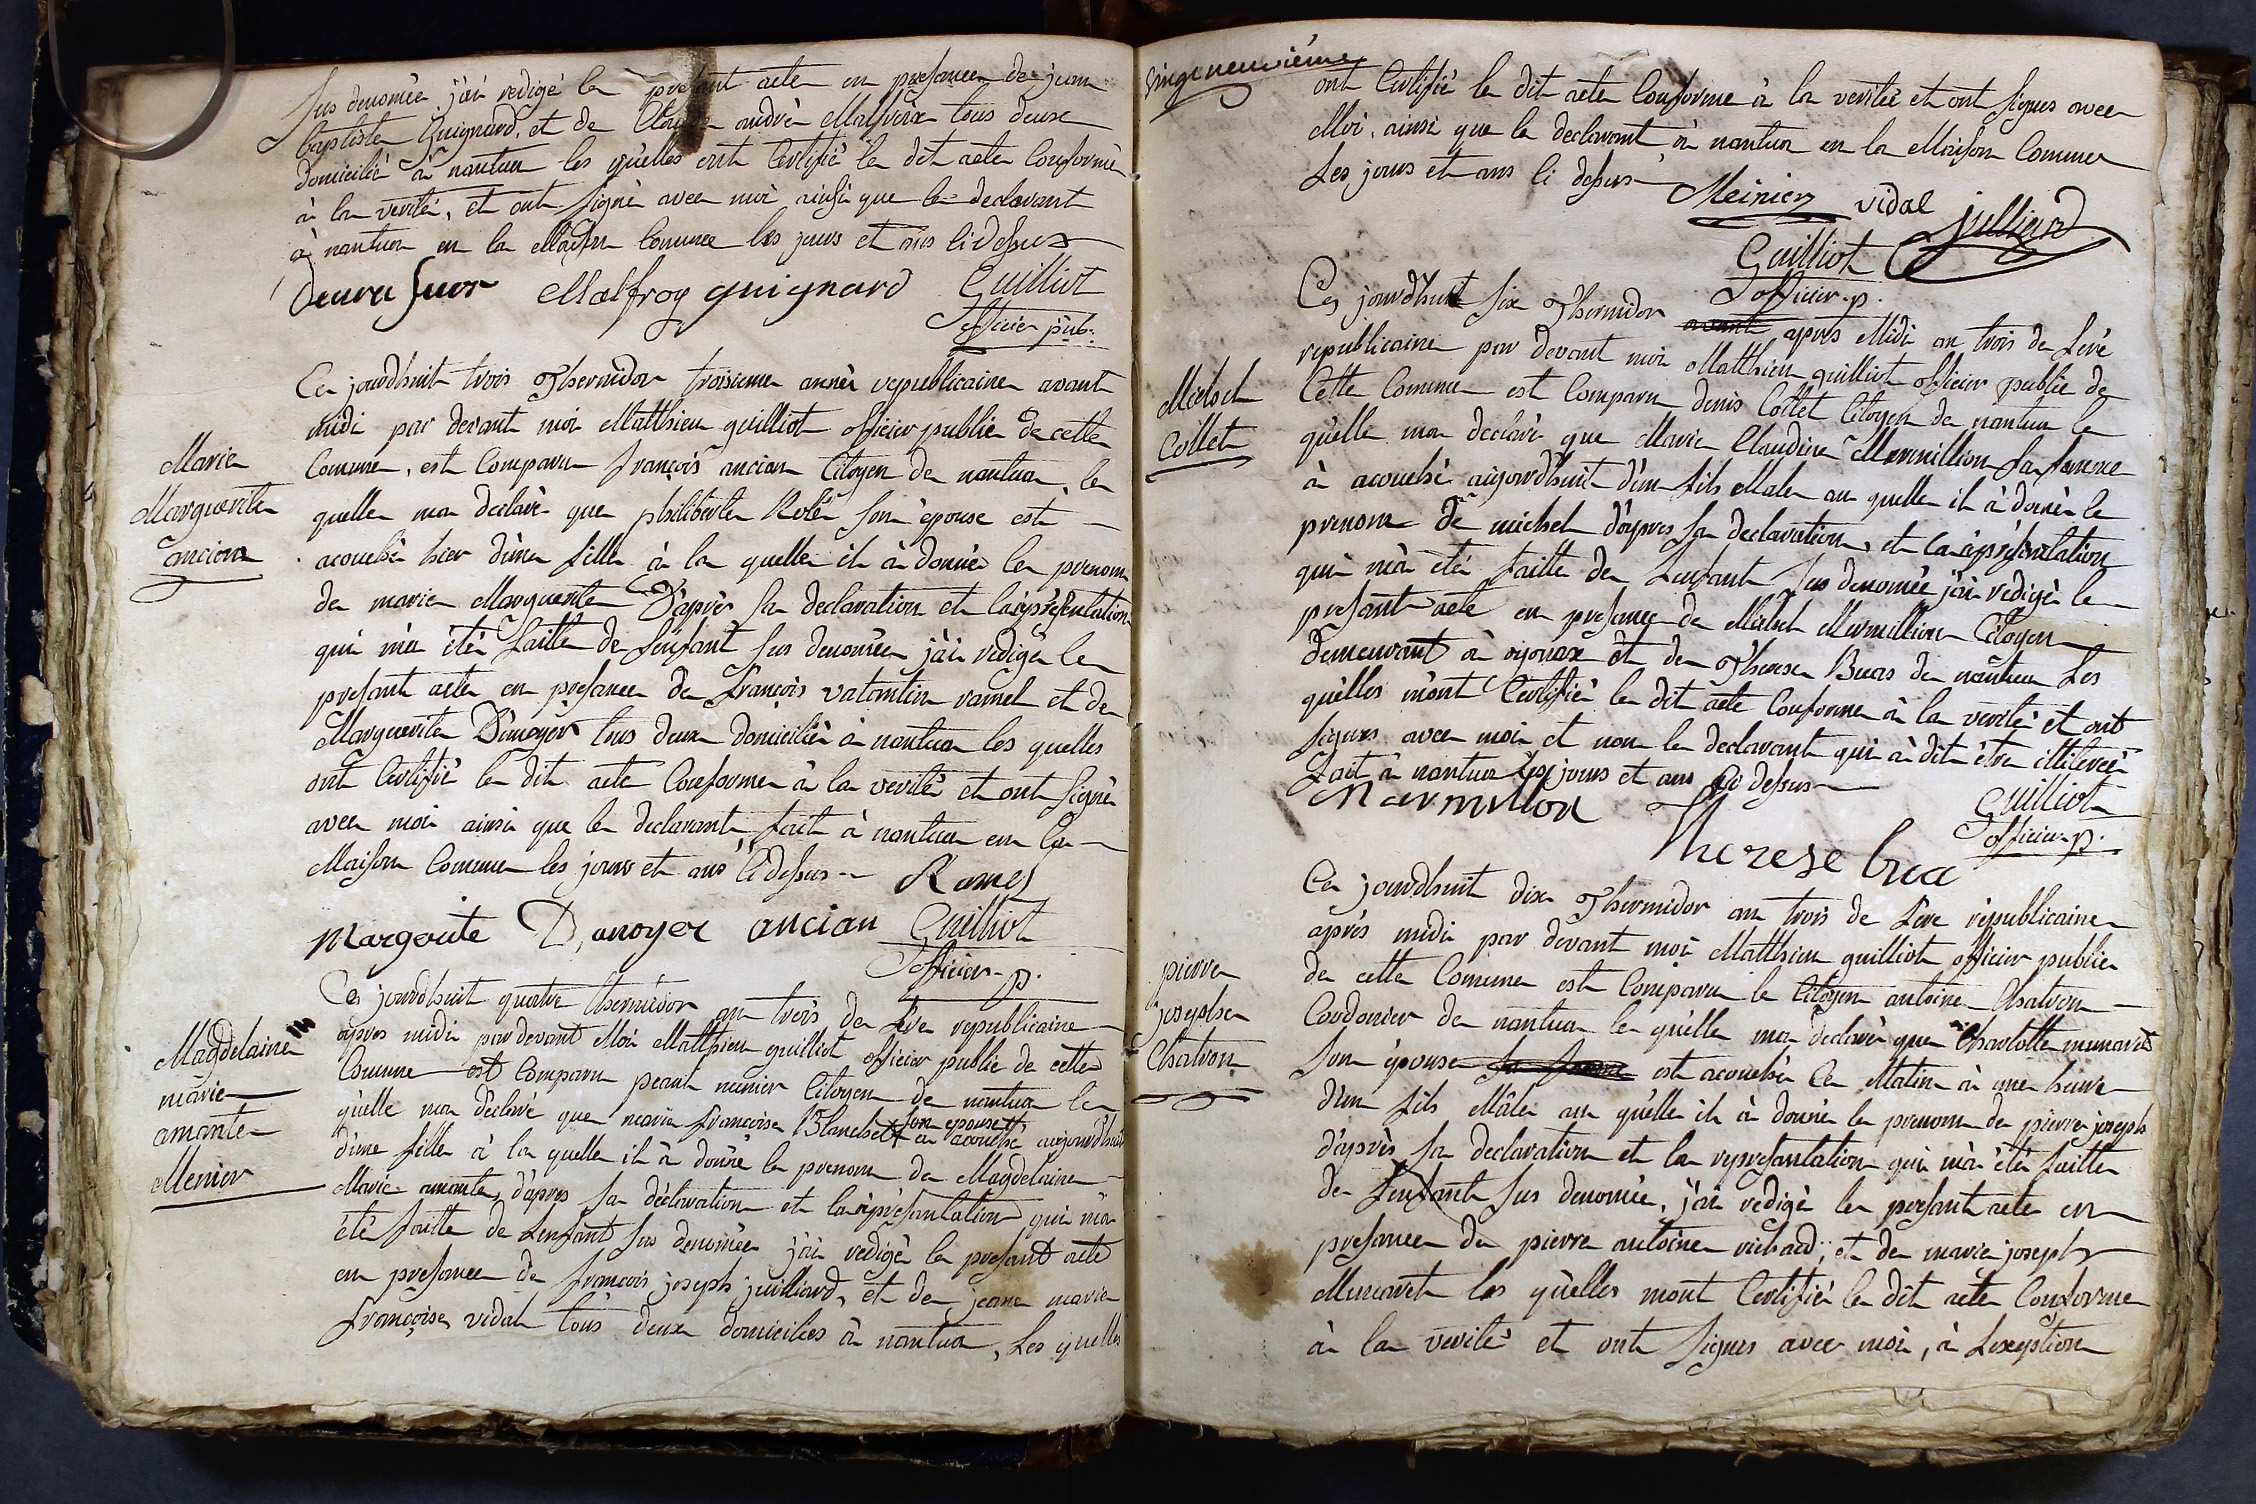 Sus denomée j'ai redigé le present acte en presance de jean
baptiste Guignard, et de andrè Malfroix tous deux
domicilié à nantua les quelles ont Certifié le dit acte Conforme
à la verité, et ont signé avec moi ainsi que le declarant
à nantua en la Maison Comune les jours et ans Ci dessus
Malfroy guignard Guilliot
officier pub.
Marie
Marguerite
ancian
Ce jourdhuit trois Thermidor troisieme année republicaine avant
midi par devant moi Matthieu guilliot officier public de cette
Comune, est Comparu françois ancian Citoyen de nantua, le
quelle ma declaré que philiberte Rolé son épouse est
acouché hier d'une fille à la quelle il à donné le prenom
de marie Marguerite D'apres sa declaration et la représentation
qui m'a été faitte de l'enfant sus denomée j'ai redigé le
presant acte en presance de françois valantin ramel et de
Marguerite Dunoyer tous deux domicilié à nantua les quelles
ont Certifié le dit acte Conforme à la verité et ont signé
avec moi ainsi que le declarant, fait à nantua en la
Maison Comune les jours et ans Ci dessus
Ramel
Margerite Dunoyer ancian Guilliot
officier p.
Magdelaine
marie
amante
Menier
Ce jourdhuit quatre thermidor an trois de L'ere republicaine
apres midi par devant Moi Matthieu guilliot officier public de cette
Comune est Comparu munier Citoyen de nantua le
quelle ma declaré que marie françoise Blanchet son epouse à acouché aujourdhuit
d'une fille à la quelle il à donné le prenom de Magdelaine
Marie amante, d'apres sa déclaration et la représantation qui m'a
été faitte de L'enfant sus denomée j'ai redigé le presant acte
en presance de françois joseph juilliard, et de jeane marie
françoise vidal tous deux domiciliés à nantua, Les quelles
vingt neuvième
ont Certifié le dit acte Conforme à la verité et ont signés avec
Moi, ainsi que le declarant à nantua en la Maison Comune
Les jours et ans Ci dessus
Meinier vidal julliard
Guilliot
officier p.
Michel
Collet
Ce jourdhuit six Thermidor avant apres Midi an trois de L'ére
republicaine par devant moi Matthieu guilliot officier public de
Cette Comune est Comparu denis Collet Citoyen de nantua le
quelle ma declaré que Marie Claudine Marmillion sa famme
à acouché aujourdhuit d'un fils Male au quelle il à donné le
prenom de michel d'apres sa declaration, et la représentation
qui m'a été faitte de L'enfant sus denomée j'ai redigé le
presant acte en presance de Michel Marmillion Citoyen
demeurant à oyonax et de Therese Buas de nantua Les
quelles m'ont Certifié le dit acte Conforme à la verité et ont
signés avec moi et non le declarant qui à dit étre illiteré
fait à nantua Les jours et ans Ci dessus
Marmillon
Guilliot
officier p.
Therese bua
pierre
josephe
Chatron
Ce jourdhuit dix Thermidor an trois de L'ere républicaine
aprés midi par devant moi Matthieu guilliot officier public
de cette Comune est Comparu le Citoyen antoine Chatron
Cordonier de nantua le quelle ma declaré que Charlotte munaret
son épouse est acouché Ce Matin à une heure
d'un fils Mâle au quelle il à donné le prenom de pierre joseph
d'aprés sa declaration et la représantation qui m'a été faitte
de L'enfant sus denomée, j'ai redigé le presant acte en
presance de pierre antoine richard, et de marie joseph
Munaret les quelles mont Certifié le dit acte Conforme
à la verité et ont signés avec moi, à L'exeption